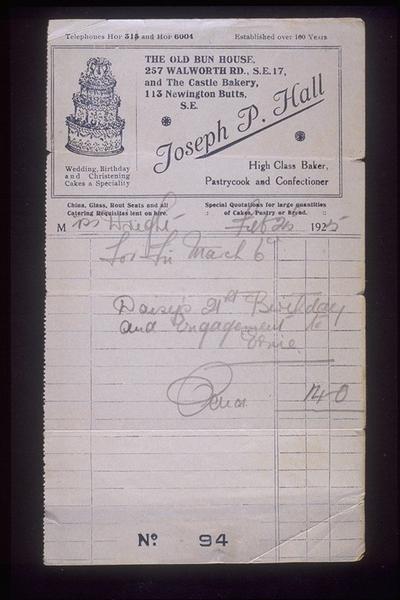 Telephones Hop 315 and Hop 6004 Established over 100 Years
THE OLD BUN HOUSE,
257 WALWORTH RD., S.E.17,
and The Castle Bakery,
113 Newington Butts,
S.E.
Joseph P. Hall
Wedding, Birthday
and Christening
Cakes a Speciality
High Class Baker,
Pastrycook and Confectioner
China, Glass, Rout Seats and all
Catering Requisites lent on hire.
Special Quotations for large quantities
: of Cakes, Pastry or Bread. :
Mrs Wright Feb 26 1925
for Fri March 6th
Daisy's 21st Birthday
and engagement to
Ernie
14-0
No. 94